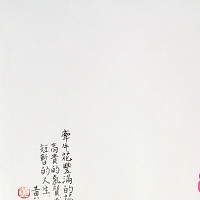 牽牛花豐滿的
高貴的氣質
短暫的人生
黃